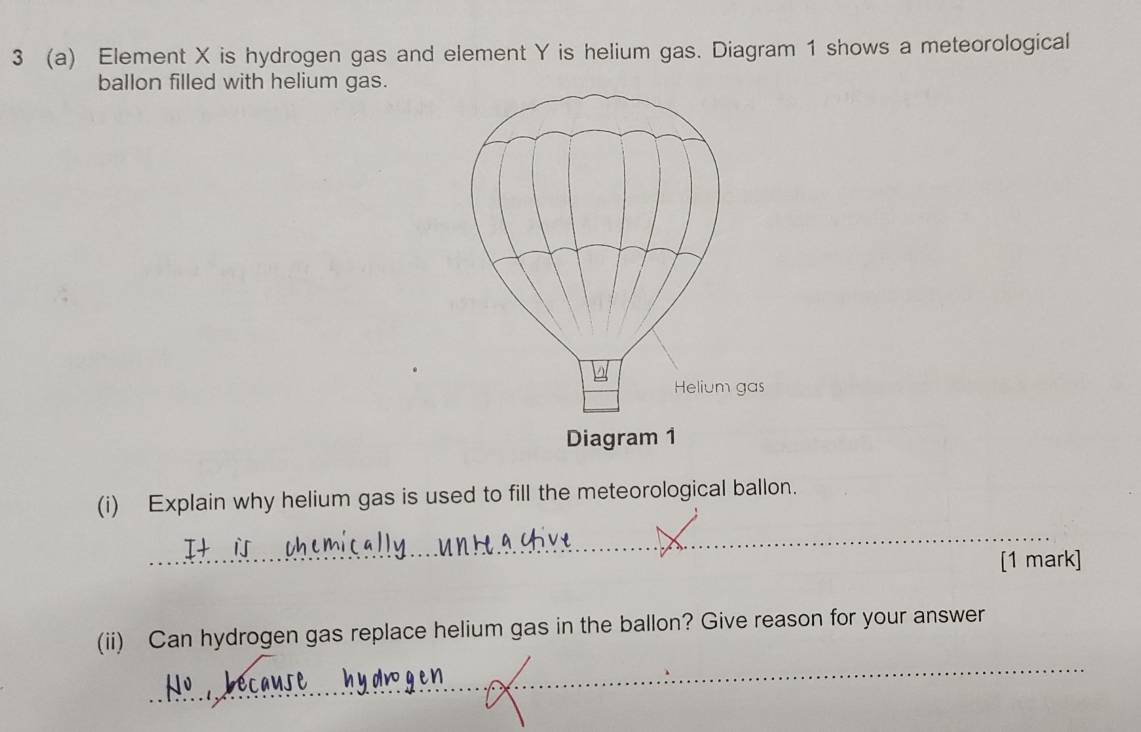 3 (a) Element X is hydrogen gas and element Y is helium gas. Diagram 1 shows a meteorological
ballon filled with helium gas.
Helium gas
Diagram 1
(i) Explain why helium gas is used to fill the meteorological ballon.
It is chemically unreactive
[1 mark]
(ii) Can hydrogen gas replace helium gas in the ballon? Give reason for your answer
No, because hydrogen